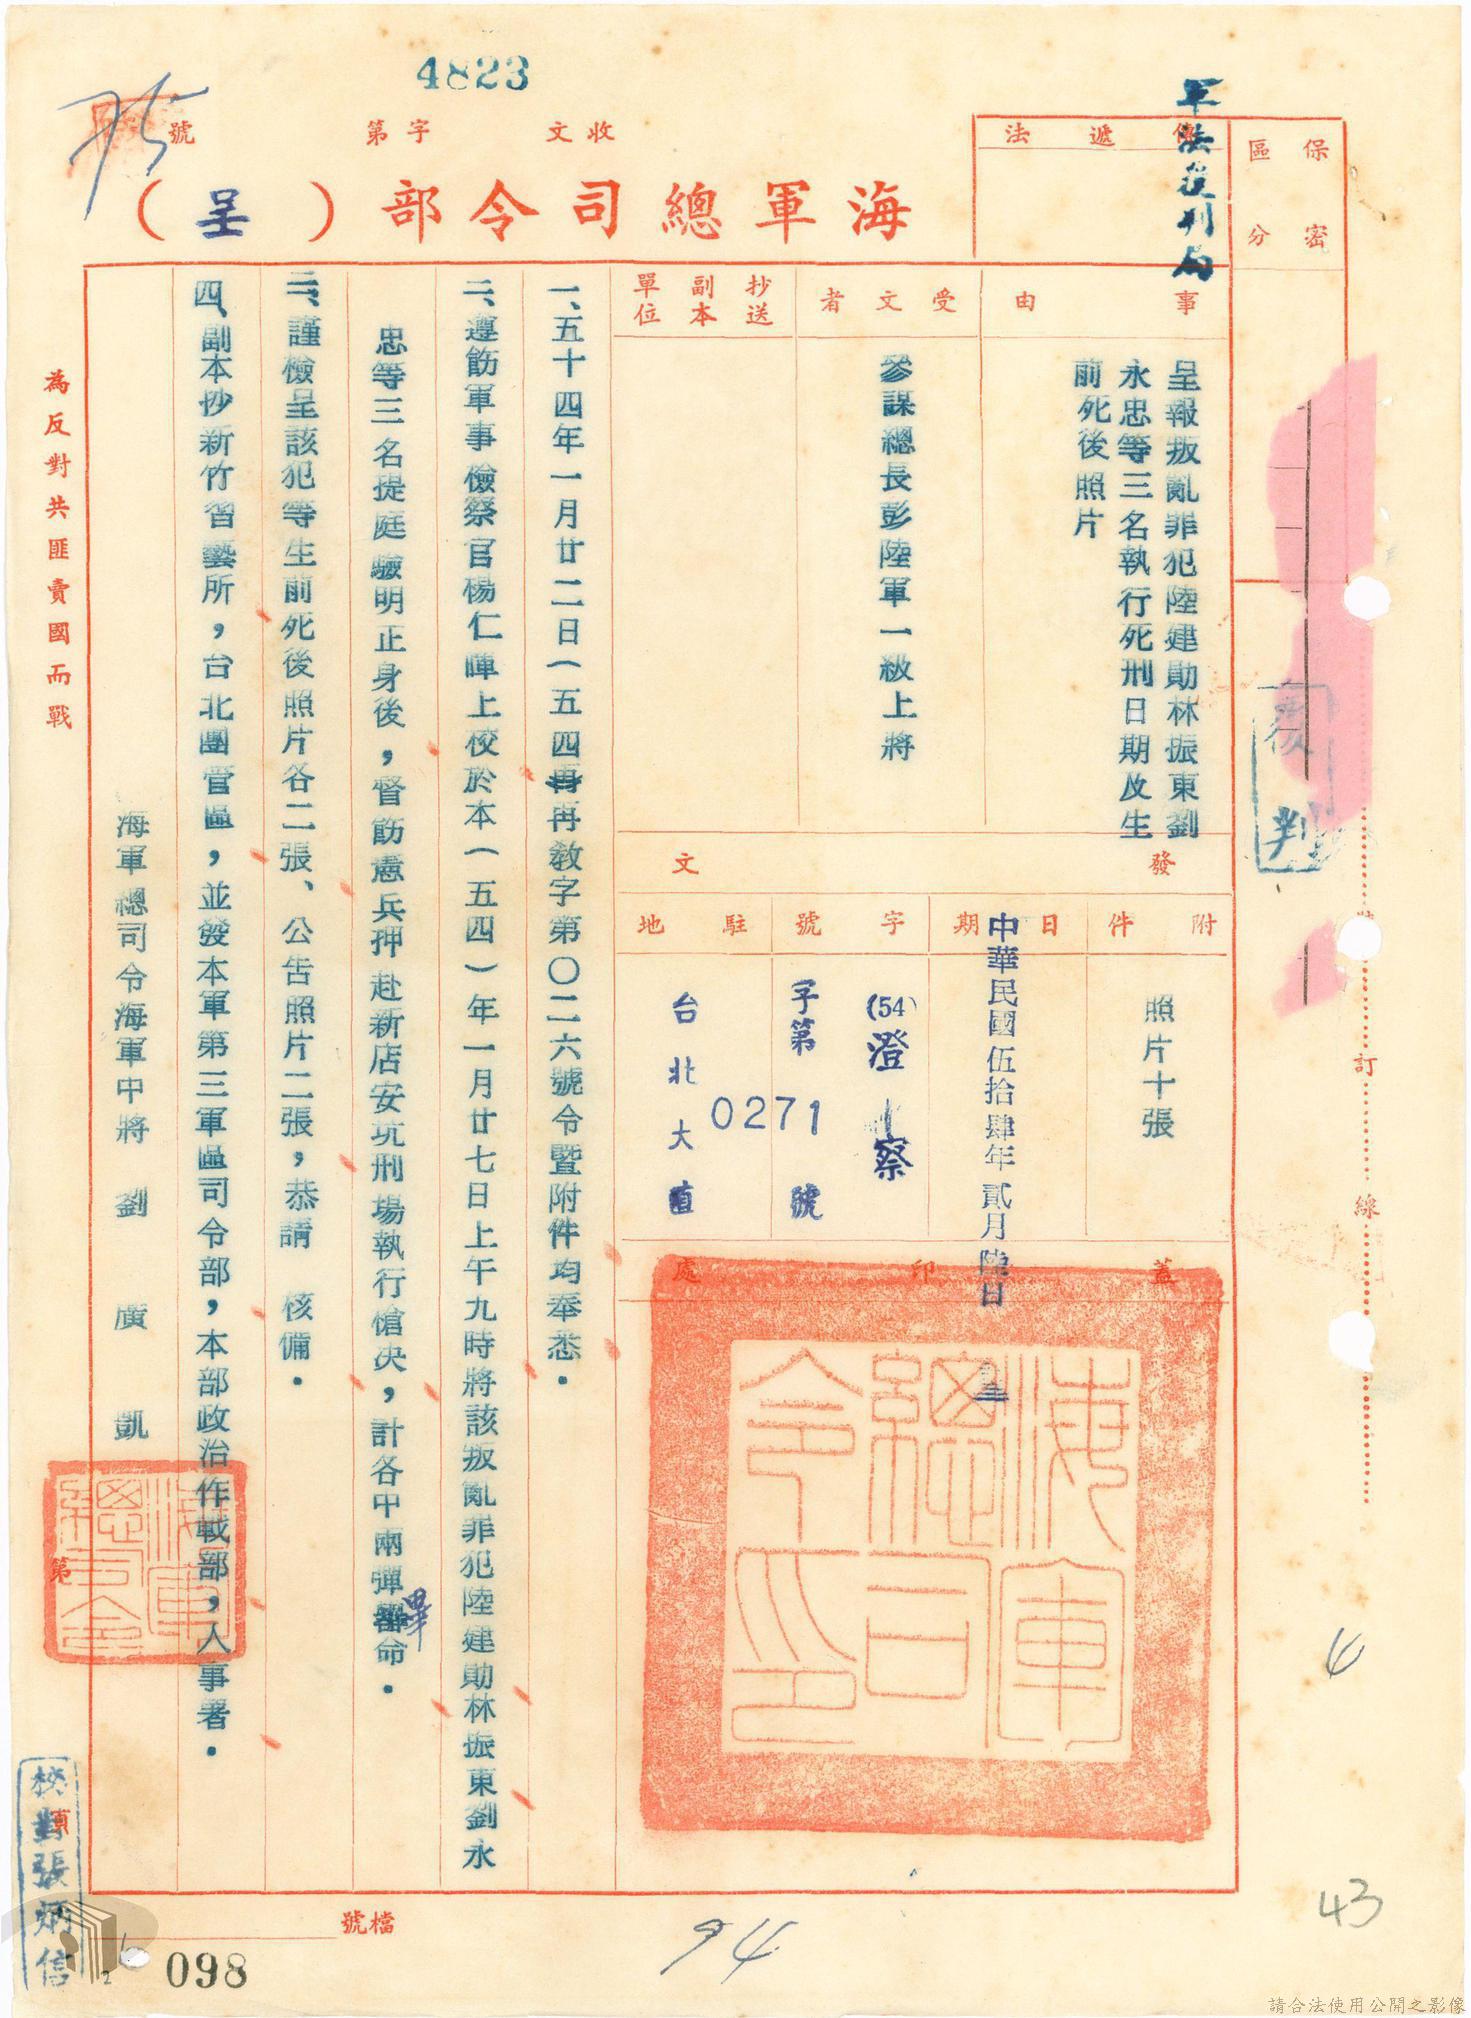 4823
收文
字第
號
75
海軍總司令部（呈）
軍法覆判局
保密
區分
傳遞法
事由
呈報叛亂罪犯陸建勛林振東劉
永忠等三名執行死刑日期及生
前死後照片
受文者
參謀總長彭陸軍一級上將
抄送
副本
單位
發文
附件
照片十張
日期
中華民國伍拾肆年貳月陸日
字號
(54)澄 察
字第0271號
駐地
台北大直
蓋印處
海軍總司令印
一、五十四年一月廿二日（五四再再教字第〇二六號令暨附件均奉悉．
二、遵飭軍事檢察官楊仁暉上校於本（五四）年一月廿七日上午九時將該叛亂罪犯陸建勛林振東劉永
忠等三名提庭驗明正身後，督飭憲兵押赴新店安坑刑場執行槍決，計各中兩彈畢命．
三、謹檢呈該犯等生前死後照片各二張、公告照片二張，恭請 核備．
四、副本抄新竹習藝所，台北團管區，並發本軍第三軍區司令部，本部政治作戰部，人事署．
海軍總司令海軍中將 劉廣凱
海軍總司令
為反對共匪賣國而戰
覆判
訂線
第
頁
校對張炳信
檔號
098
94
43
請合法使用公開之影像